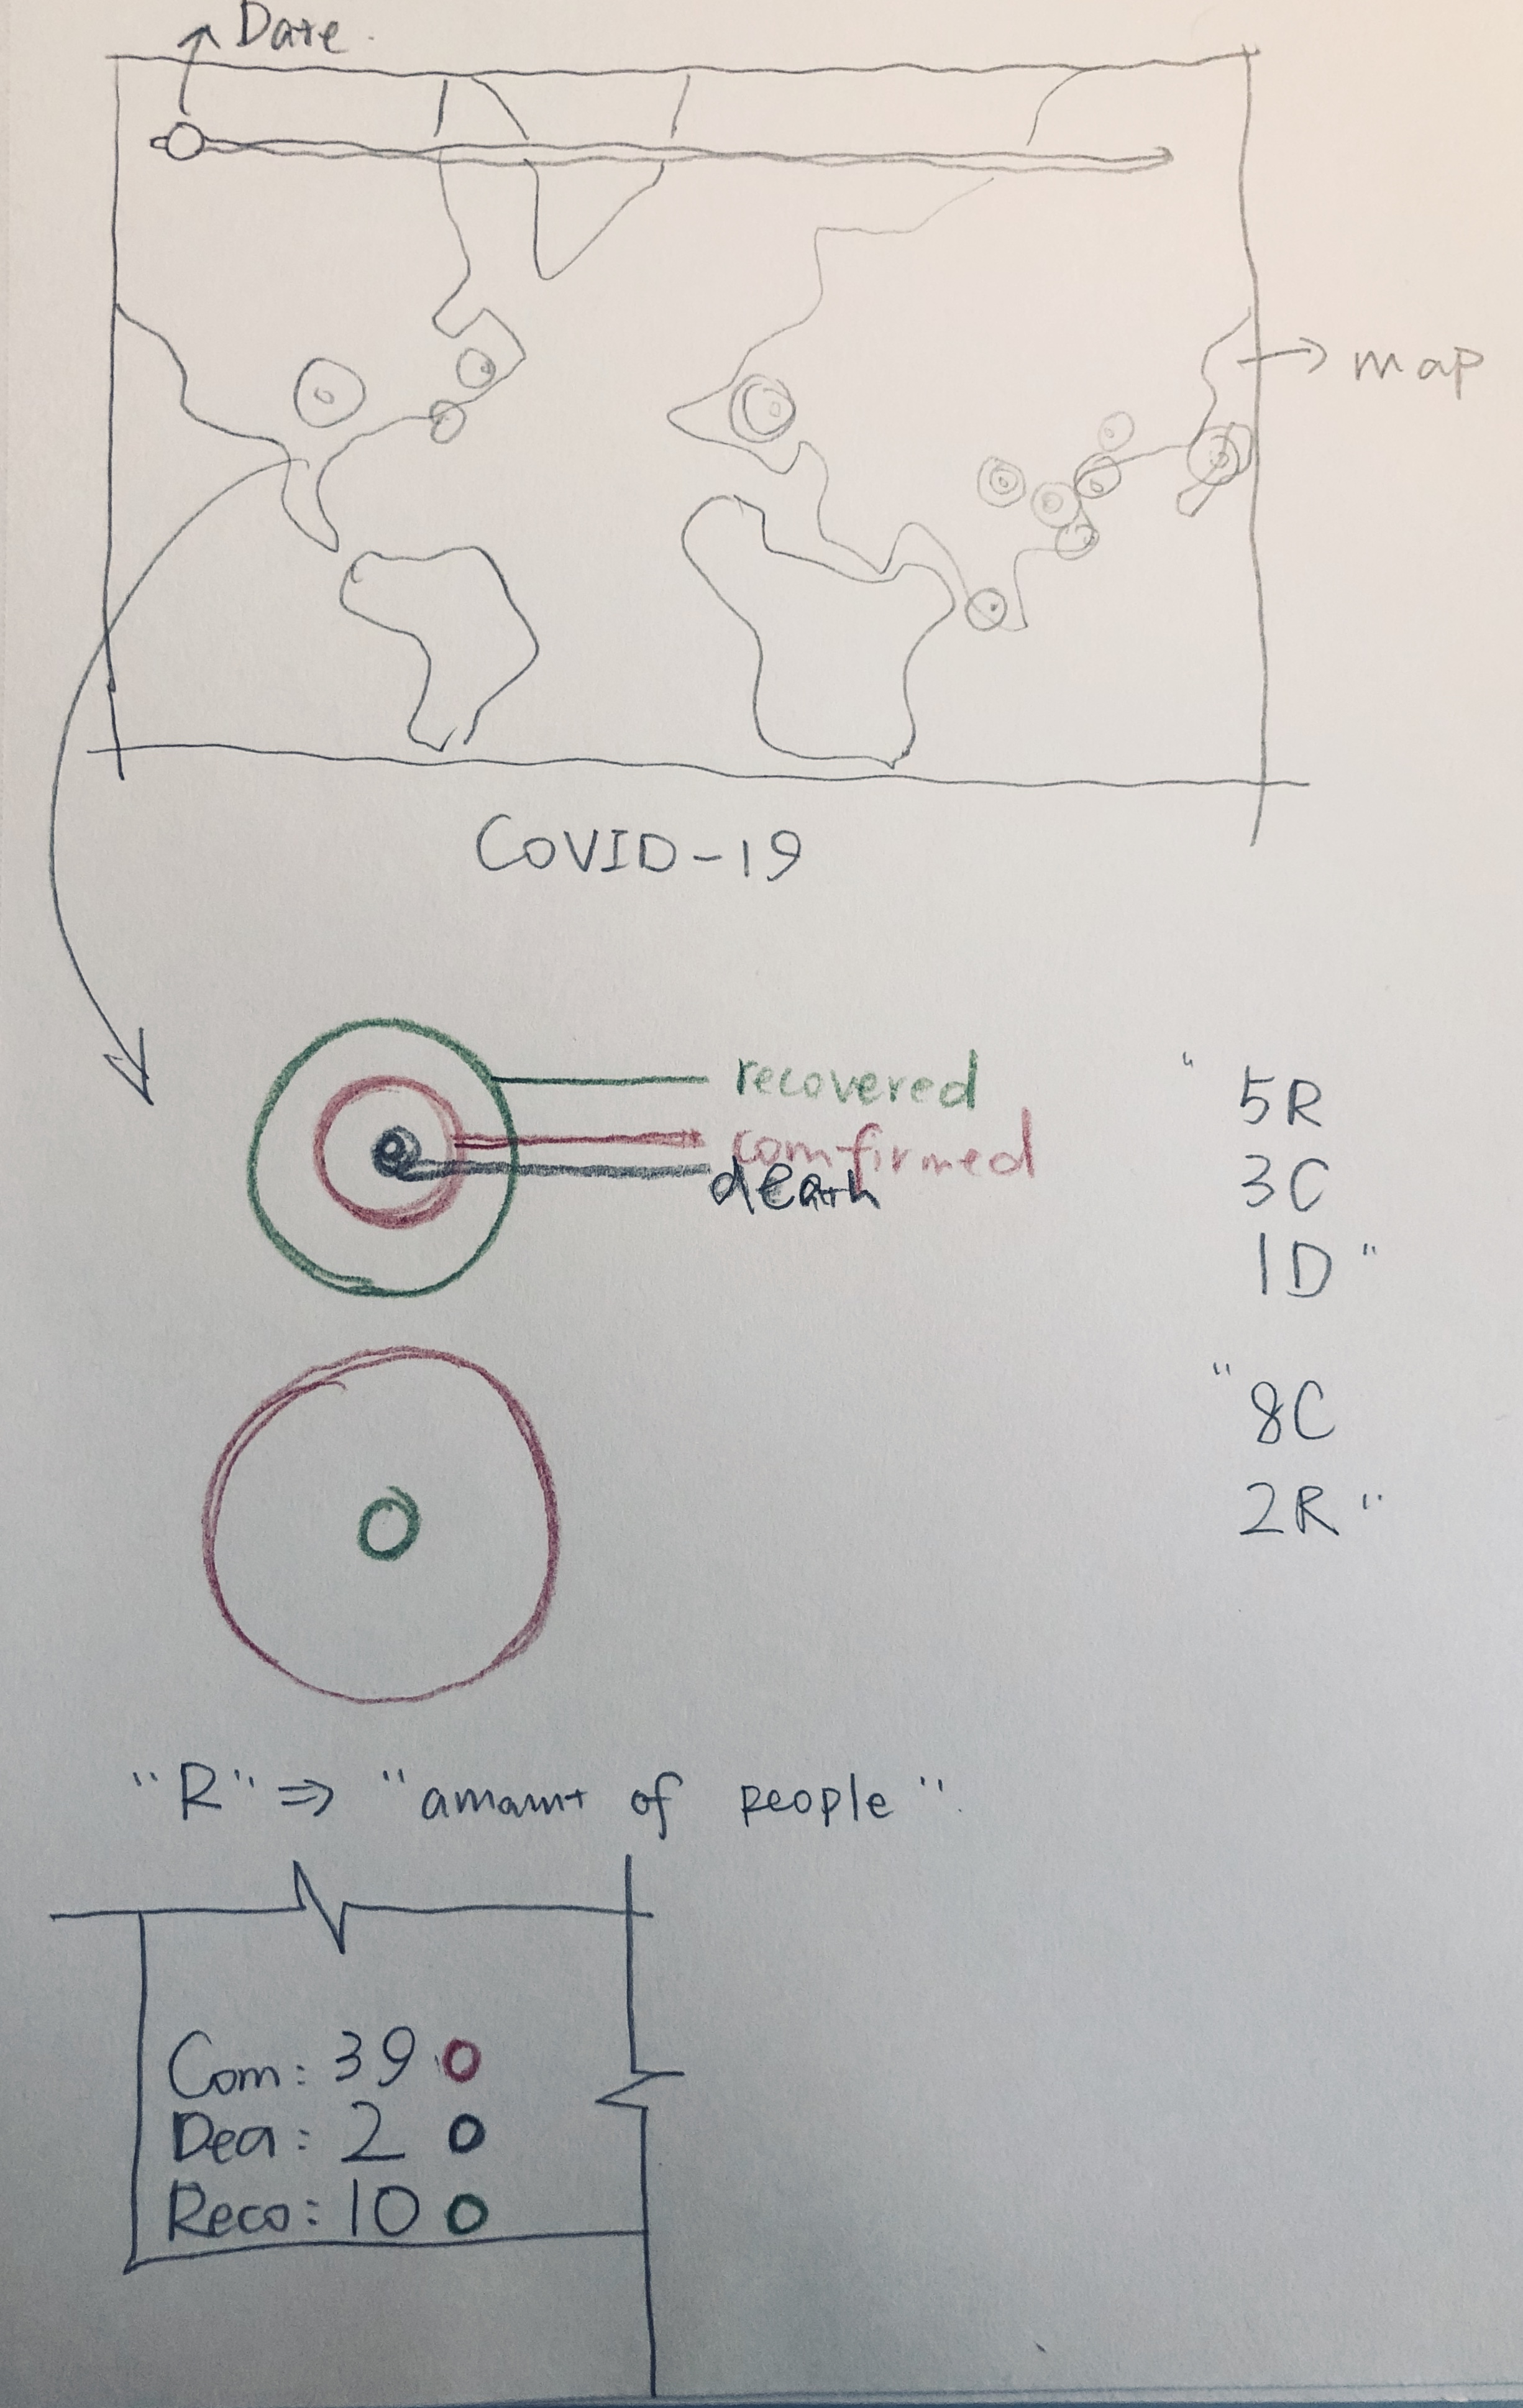 Date.
map
COVID-19
recovered
comfirmed
death
" 5R
3C
1D "
" 8C
2R "
"R" ⇒ "amount of people".
Com: 39
Dea: 2
Reco: 10